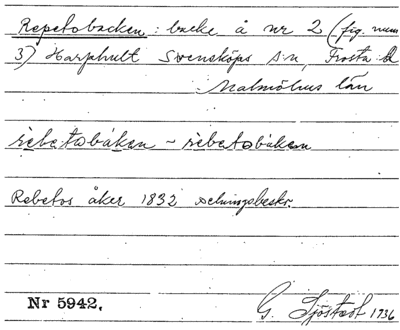 Repetobacken: backe å nr 2 (fig. num
3) Harphult Svensköps sn, Frosta hd
Malmöhus län
rèbetobákan - rèbetobàkan
Rebetos åker 1832 delningsbeskr.
Nr 5942. G. Sjöstedt 1936